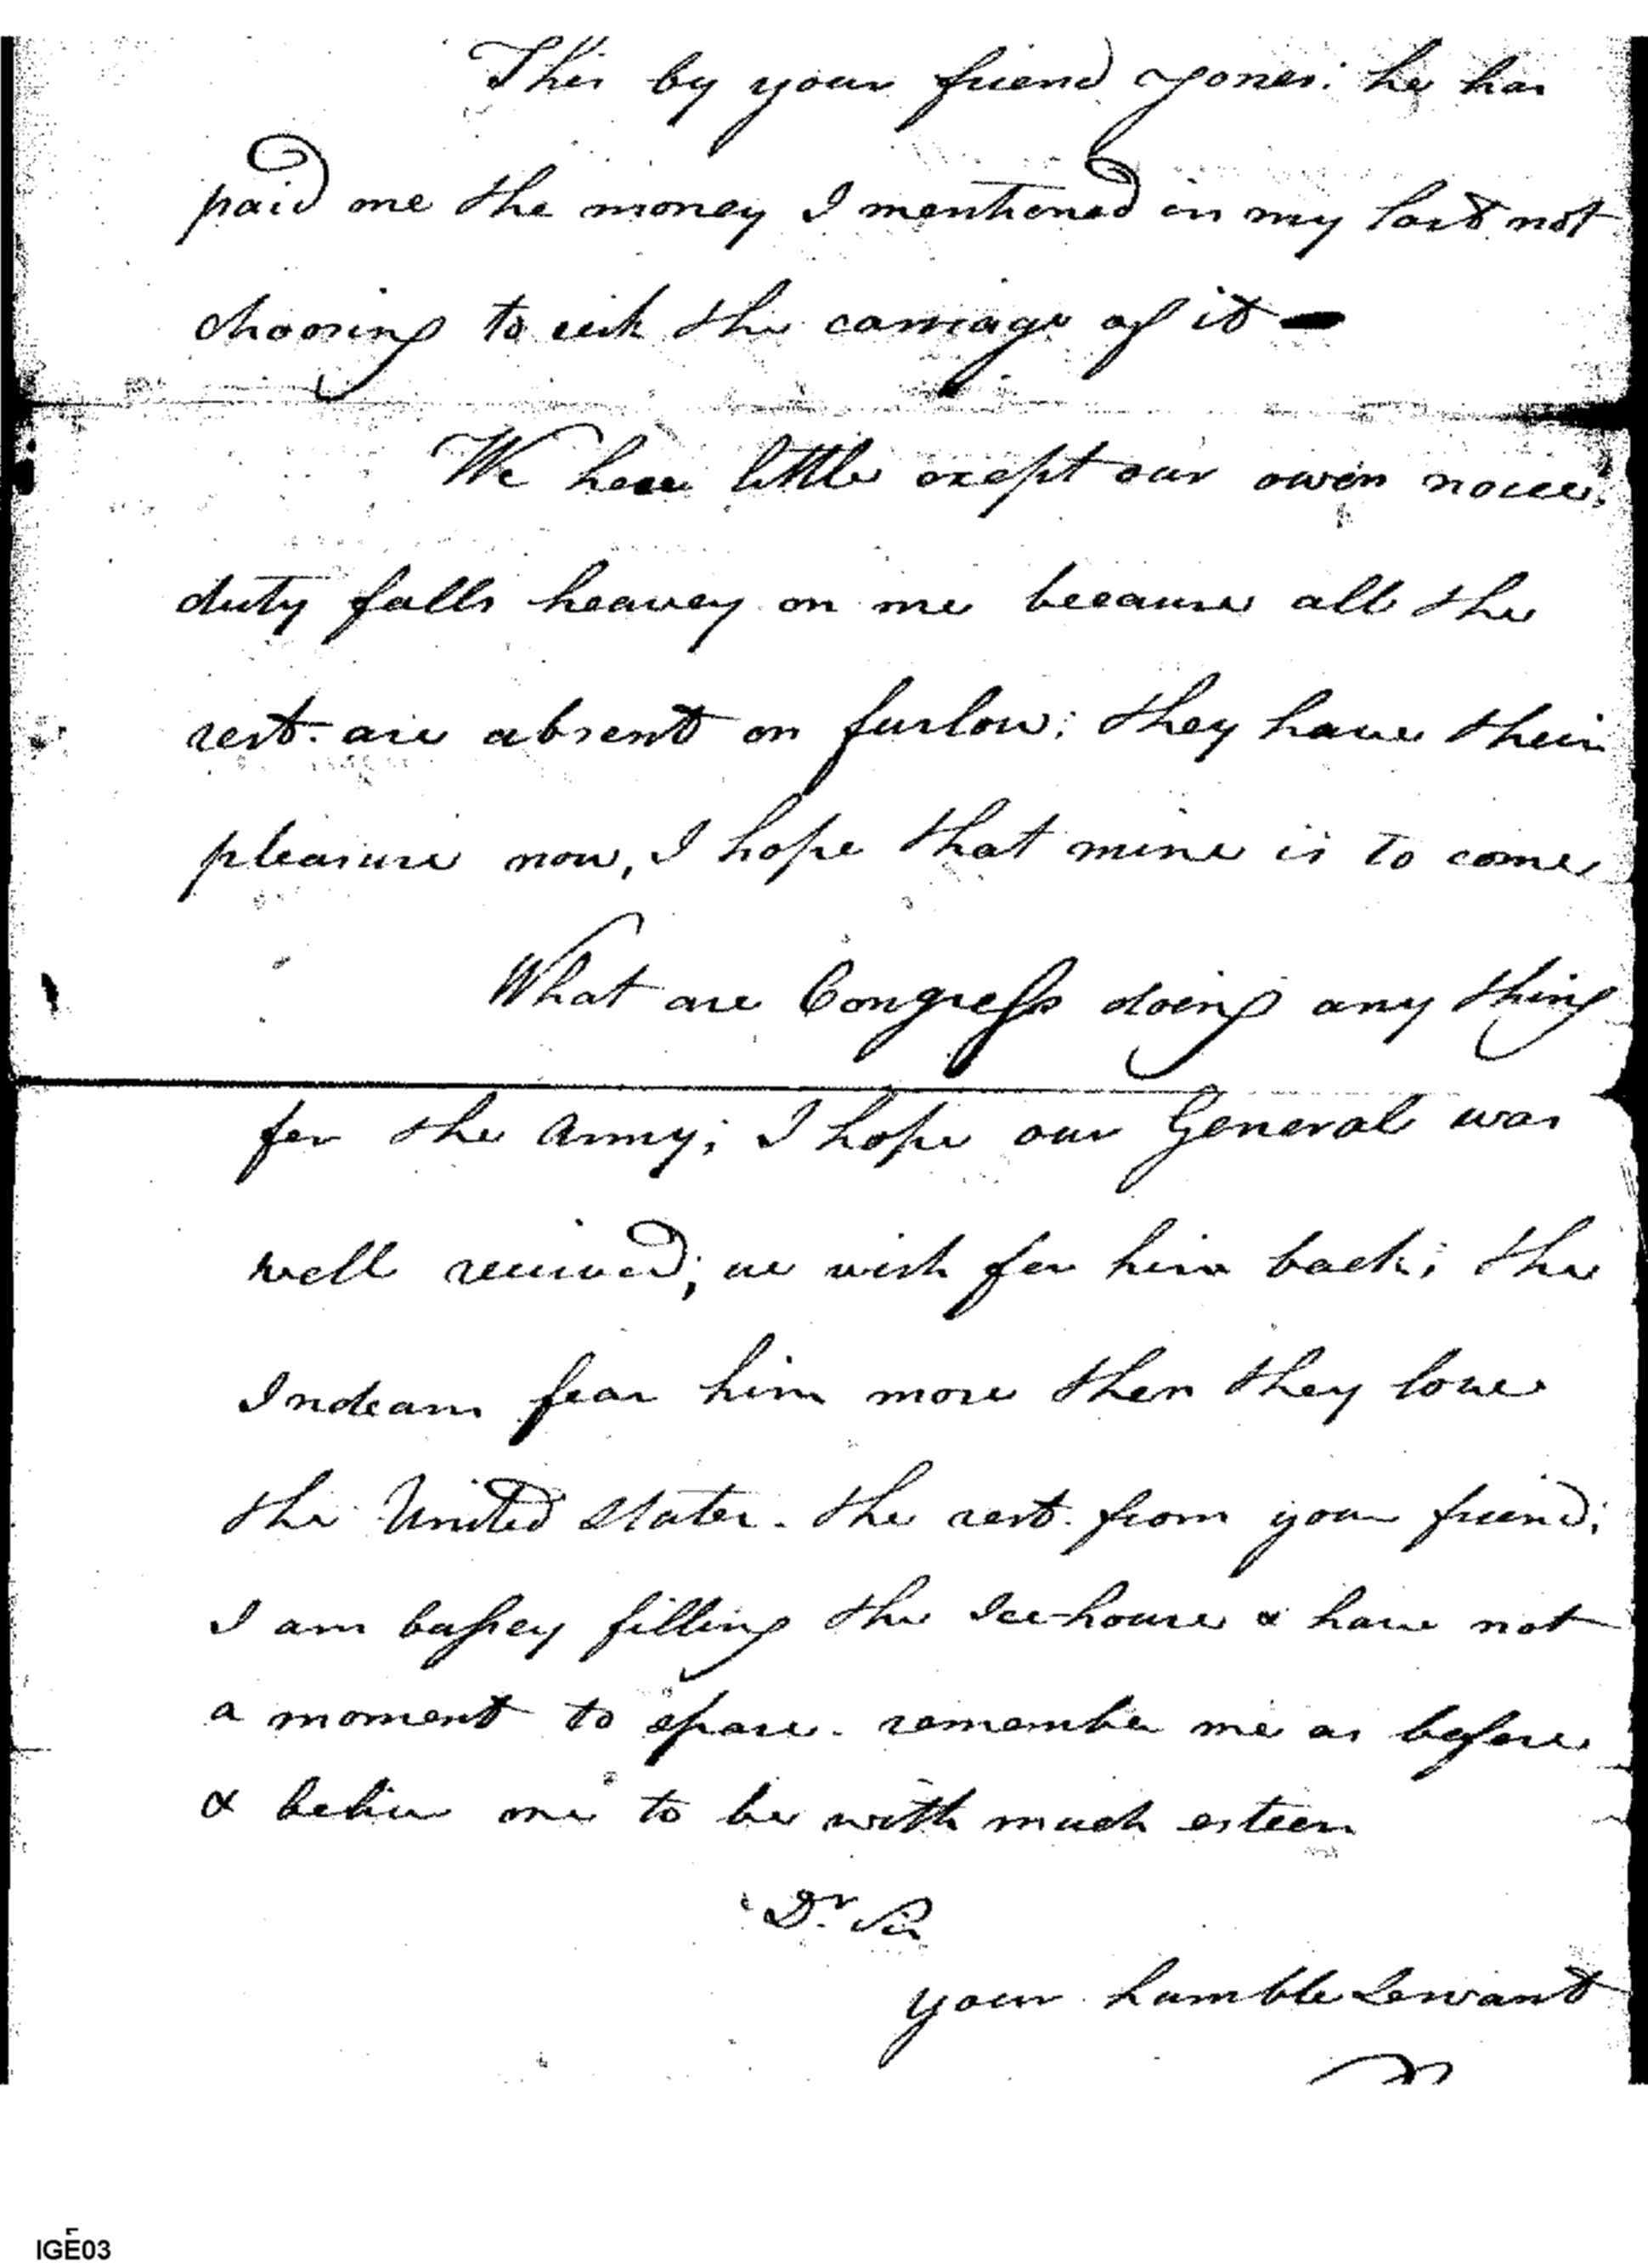 This by your friend Jones: he has
paid me the money I mentioned in my last not
choosing to risk the carriage of it —
We hear little except our owen noise;
duty falls heavey on me because all the
rest are absent on furlow; they have their
pleasure now, I hope that mine is to come
What are Congress doing any thing
for the Army; I hope our General was
well received; we wish for him back; the
Indeans fear him more then they love
the United States. the rest from your friend;
I am bussey filling the Ice house & have not
a moment to spare. remember me as before
& belive me to be with much esteem
Dr Sir
your humble Servant
IGE03